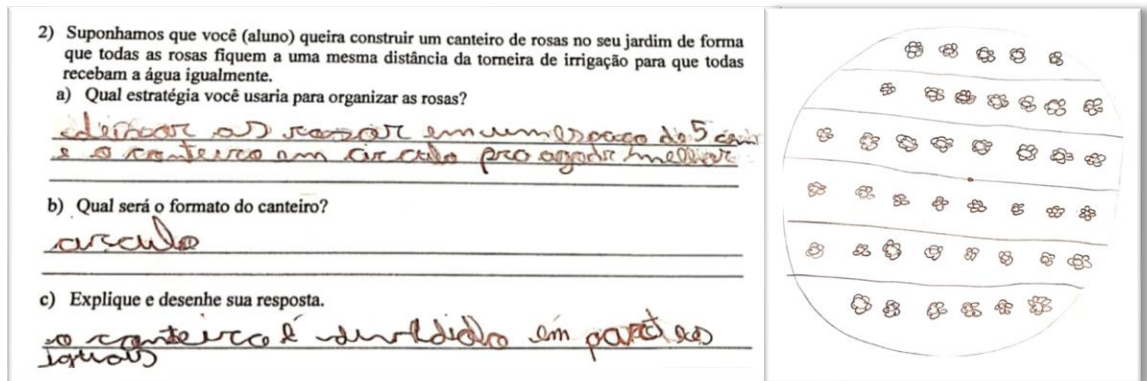 2) Suponhamos que você (aluno) queira construir um canteiro de rosas no seu jardim de forma
que todas as rosas fiquem a uma mesma distância da torneira de irrigação para que todas
recebam a água igualmente.
a) Qual estratégia você usaria para organizar as rosas?
deixar as rosas em um espaço de 5 cm
e o canteiro em circulo pra agodir melhor
b) Qual será o formato do canteiro?
circulo
c) Explique e desenhe sua resposta.
o canteiro é dividido em partes
iguais